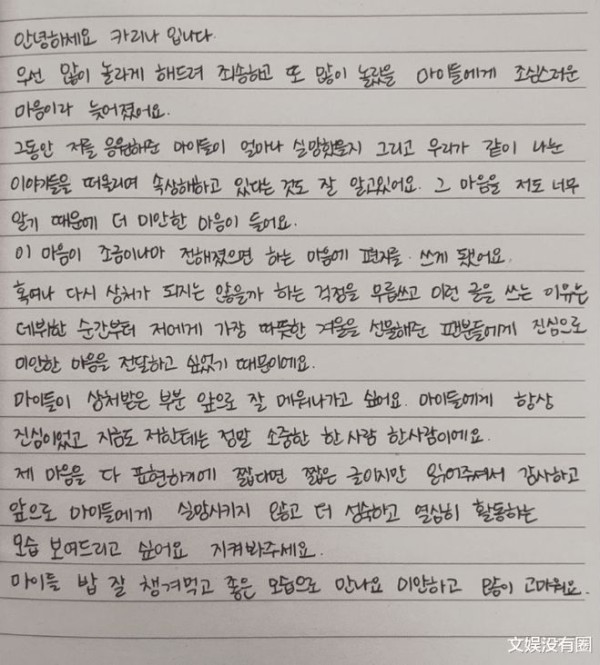 안녕하세요 카리나 입니다.
우선 많이 놀라게 해드려 죄송하고 또 많이 놀랐을 마이들에게 조심스러운
마음이라 늦어졌어요.
그동안 저를 응원해준 마이들이 얼마나 실망했을지 그리고 우리가 같이 나눈
이야기들을 떠올리며 속상해하고 있다는 것도 잘 알고있어요. 그 마음을 저도 너무
알기 때문에 더 미안한 마음이 들어요.
이 마음이 조금이나마 전해졌으면 하는 마음에 편지를 쓰게 됐어요.
혹여나 다시 상처가 되지는 않을까 하는 걱정을 무릅쓰고 이런 글을 쓰는 이유는
데뷔한 순간부터 저에게 가장 따뜻한 겨울을 선물해준 팬분들에게 진심으로
미안한 마음을 전달하고 싶었기 때문이에요.
마이들이 상처받은 부분 앞으로 잘 메워나가고 싶어요. 마이들에게 항상
진심이었고 지금도 저한테는 정말 소중한 한 사람 한사람이에요.
제 마음을 다 표현하기에 짧다면 짧은 글이지만 읽어주셔서 감사하고
앞으로 마이들에게 실망시키지 않고 더 성숙하고 열심히 활동하는
모습 보여드리고 싶어요 지켜봐주세요.
마이들 밥 잘 챙겨먹고 좋은 모습으로 만나요 미안하고 많이 고마워요.
文娱没有圈